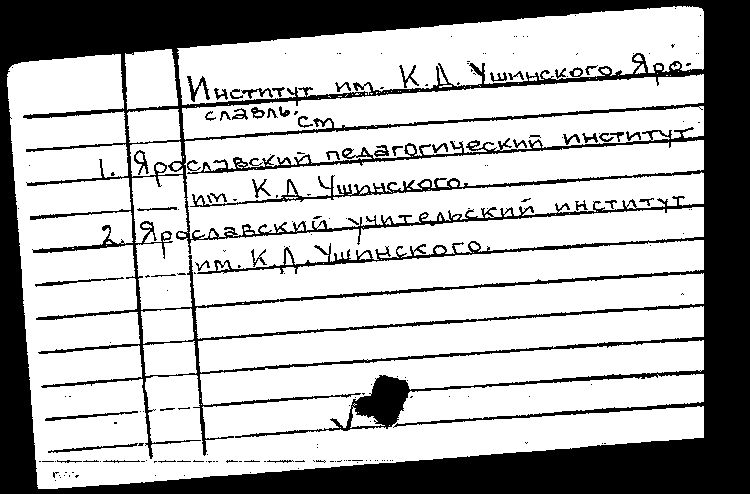 Институт им. К.Д. Ушинского. Яро-
славль.
см.
1. Ярославский педагогический институт
им. К.Д. Ушинского.
2. Ярославский учительский институт
им. К.Д. Ушинского.